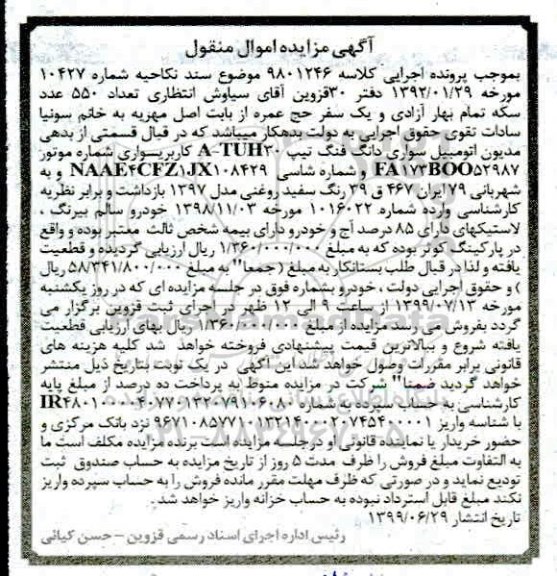 آگهی مزایده اموال منقول
بموجب پرونده اجرایی کلاسه ۹۸۰۱۲۴۶ موضوع سند نکاحیه شماره ۱۰۴۲۷
مورخه ۱۳۹۲/۰۱/۲۹ دفتر ۳۰قزوین آقای سیاوش انتظاری تعداد ۵۵۰ عدد
سکه تمام بهار آزادی و یک سفر حج عمره از بابت اصل مهریه به خانم سونیا
سادات تقوی حقوق اجرایی به دولت بدهکار میباشد که در قبال قسمتی از بدهی
مدیون اتومبیل سواری دانگ فنگ تیپ A-TUH۳۰ کاربریسواری شماره موتور
FA۱۷۳BOO۵۲۹۸۷ و شماره شاسی NAAE۴CFZ۱JX۱۰۸۴۲۹ و به
شهربانی ۷۹ ایران ۴۶۷ ق ۳۹ رنگ سفید روغنی مدل ۱۳۹۷ بازداشت و برابر نظریه
کارشناسی وارده شماره ۱۰۱۶۰۲۲ مورخه ۱۳۹۸/۱۱/۰۳ خودرو سالم بیرنگ ،
لاستیکهای دارای ۸۵ درصد آج و خودرو دارای بیمه شخص ثالث معتبر بوده و واقع
در پارکینگ کوثر بوده که به مبلغ ۱/۳۶۰/۰۰۰/۰۰۰ ریال ارزیابی گردیده و قطعیت
یافته و لذا در قبال طلب بستانکار به مبلغ (جمعا" به مبلغ ۵۸/۳۴۱/۸۰۰/۰۰۰ ریال
) و حقوق اجرایی دولت ، خودرو بشماره فوق در جلسه مزایده ای که در روز یکشنبه
مورخه ۱۳۹۹/۰۷/۱۳ از ساعت ۹ الی ۱۲ ظهر در اجرای ثبت قزوین برگزار می
گردد بفروش می رسد مزایده از مبلغ ۱/۳۶۰/۰۰۰/۰۰۰ ریال بهای ارزیابی قطعیت
یافته شروع و ببالاترین قیمت پیشنهادی فروخته خواهد شد کلیه هزینه های
قانونی برابر مقررات وصول خواهد شد این آگهی در یک نوبت بتاریخ ذیل منتشر
خواهد گردید ضمنا" شرکت در مزایده منوط به پرداخت ده درصد از مبلغ پایه
کارشناسی به حساب سپرده به شماره
با شناسه واریز نزد بانک مرکزی و
حضور خریدار یا نماینده قانونی او درجلسه مزایده است برنده مزایده مکلف است ما
به التفاوت مبلغ فروش را ظرف مدت ۵ روز از تاریخ مزایده به حساب صندوق ثبت
تودیع نماید و در صورتی که ظرف مهلت مقرر مانده فروش را به حساب سپرده واریز
نکند مبلغ قابل استرداد نبوده به حساب خزانه واریز خواهد شد .
تاریخ انتشار ۱۳۹۹/۰۶/۲۹
رئیس اداره اجرای اسناد رسمی قزوین - حسن کیانی